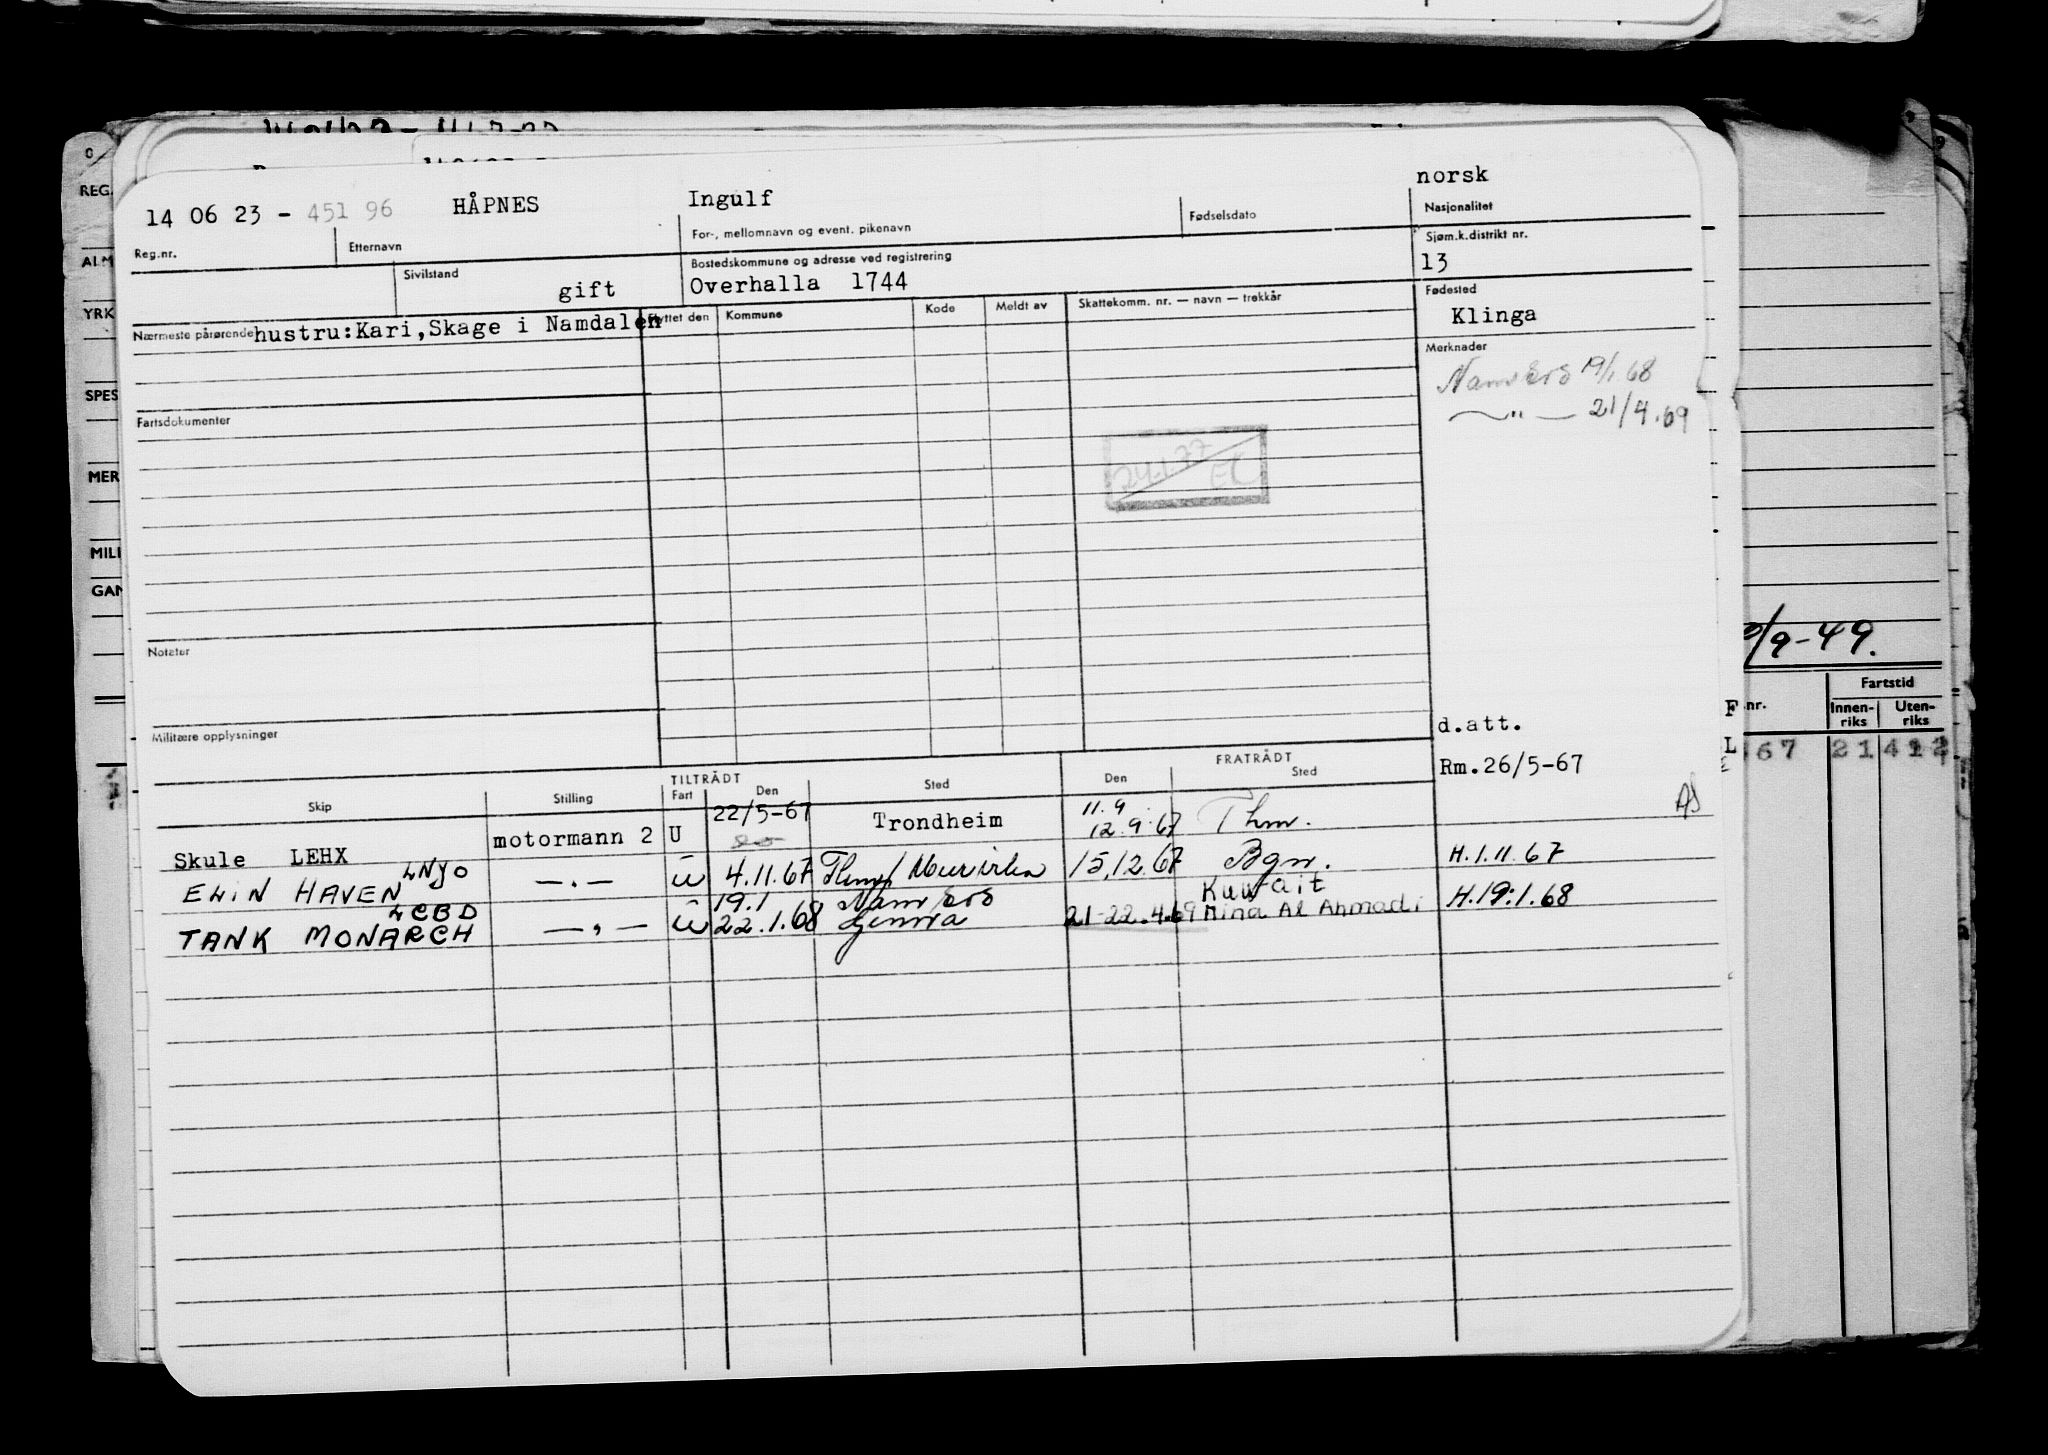 norsk
14 06 23 - 451 96 HÅPNES Ingulf
Reg.nr. Etternavn For-, mellomnavn og event. pikenavn Fødselsdato Nasjonalitet
Sivilstand Bostedskommune og adresse ved registrering Sjøm.k.distrikt nr.
gift Overhalla 1744 13
Nærmeste pårørende hustru:Kari,Skage i Namdalen Flyttet den Kommune Kode Meldt av Skattekomm. nr. — navn — trekkår Fødested
Klinga
Merknader
Namsos 19/1.68
—"— 21/4.69
Fartsdokumenter
24.1.77
EK
Notater
Militære opplysninger
d.att.
Rm.26/5-67
TILTRÅDT FRATRÅDT
Skip Stilling Fart Den Sted Den Sted
Skule LEHX motormann 2 U 22/5-67 Trondheim 11.9 12.9.67 Thm.
AS
ELIN HAVEN LNJO —"— U 4.11.67 15.12.67 Bgn. H.1.11.67
TANK MONARCH LCBD —"— U 19.1 22.1.68 Namsos Genova 21-22.4.69 Kuwait Mina Al Ahmadi H.19.1.68
REG.
YRK
SPES
MER
MILI
GAN
/9-49.
nr. Fartstid
Innen-riks Uten-riks
67 21 412